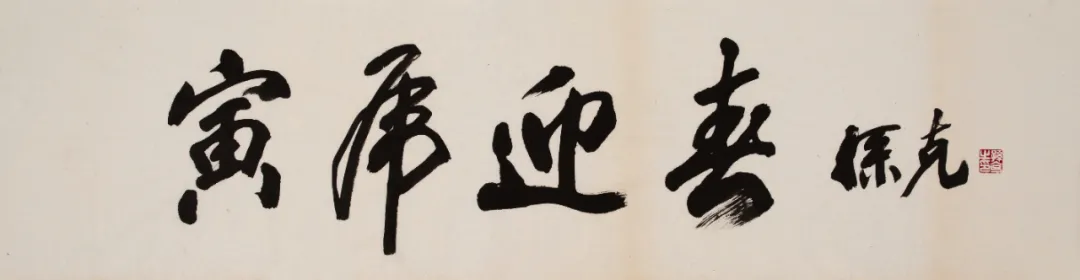 寅虎迎春 探克